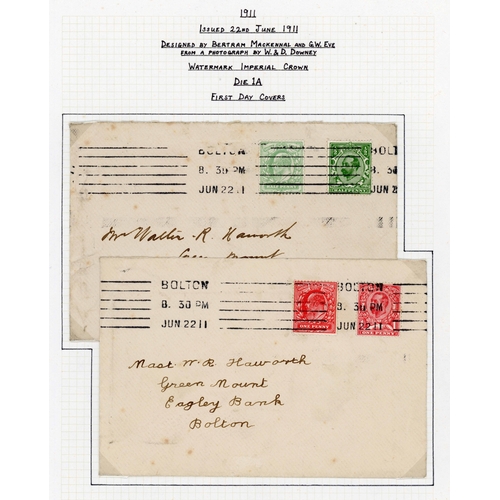 1911
ISSUED 22ND JUNE 1911
DESIGNED BY BERTRAM MACKENNAL AND G.W. EVE
FROM A PHOTOGRAPH BY W. & D. DOWNEY
WATERMARK IMPERIAL CROWN
DIE 1A
FIRST DAY COVERS
BOLTON
8. 30 PM
JUN 22 11
BOLT
8. 30
JUN 2
Mr Walter. R. Haworth
BOLTON
8. 30 PM
JUN 22 11
ONE PENNY
BOLTON
8. 30 PM
JUN 22 11
ONE PENNY
Mast. W. R. Haworth
Green Mount
Eagley Bank
Bolton